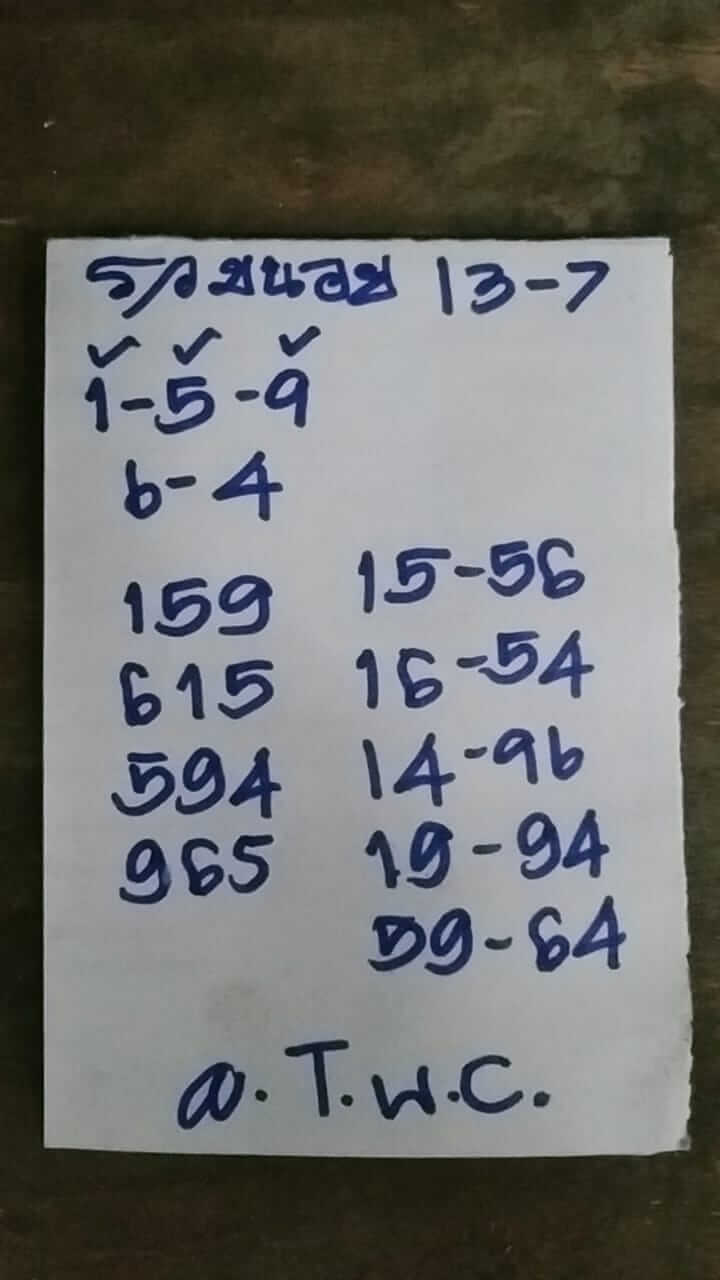 รวยหน่อย 13-7
1-5-9
6-4
159 15-56
615 16-54
594 14-96
965 19-94
59-64
อ.T.พ.C.